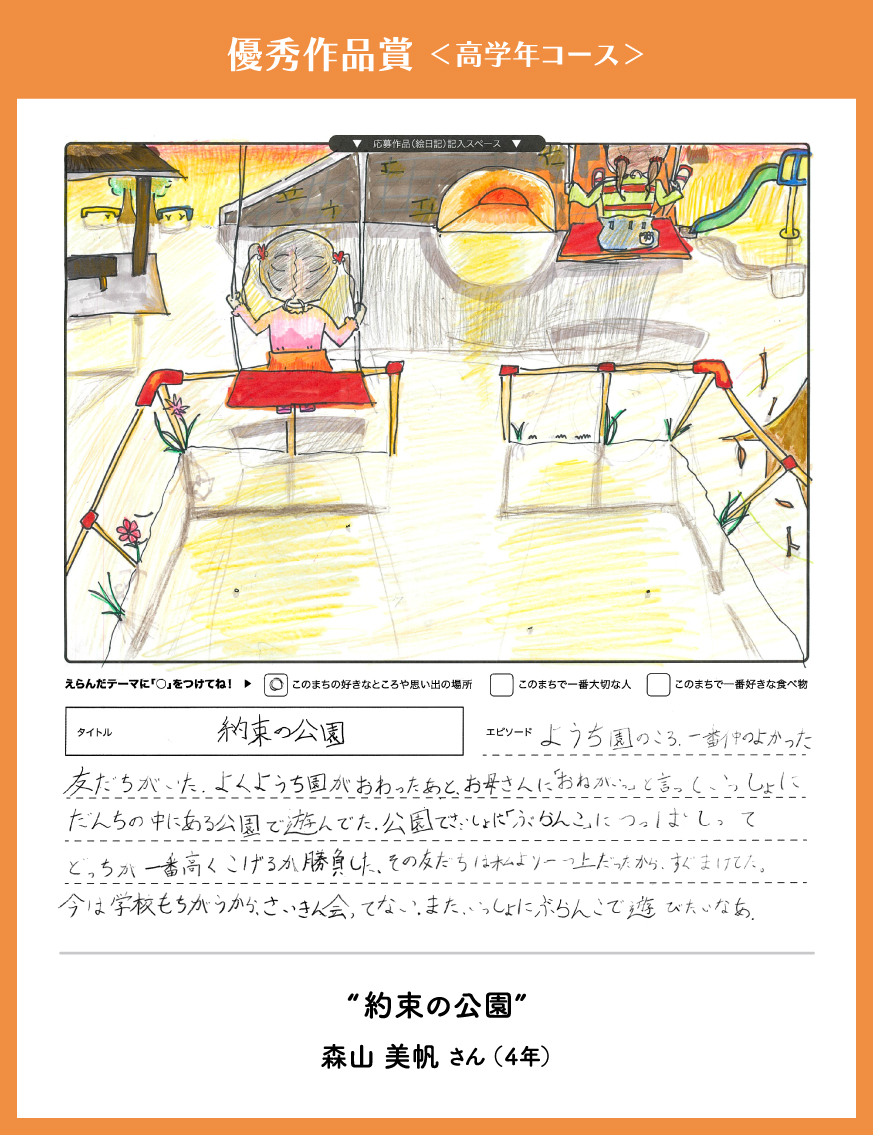 優秀作品賞 <高学年コース>
▼ 応募作品(絵日記)記入スペース ▼
えらんだテーマに「○」をつけてね! ▶ ○ このまちの好きなところや思い出の場所 このまちで一番大切な人 このまちで一番好きな食べ物
タイトル 約束の公園
エピソード ようち園のころ、一番仲のよかった
友だちがいた。よくようち園がおわったあと、お母さんに「おねがいっ」と言っていっしょに
だんちの中にある公園で遊んでた。公園でさいしょは「ぶらんこ」につっぱしって
どっちが一番高くこげるか勝負した。その友だちは私より一つ上だったから、すぐまけてた。
今は学校もちがうから、さいきん会ってない。また、いっしょにぶらんこで遊びたいなあ。
“約束の公園”
森山 美帆 さん (4年)